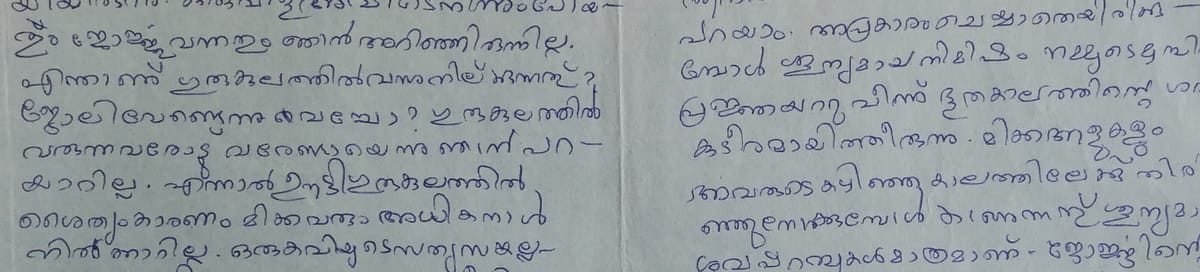 ളും ജോർജ്ജു വന്നതും ഞാൻ അറിഞ്ഞിരുന്നില്ല.
എന്താണ് ഗുരുകുലത്തിൽ വന്നു നില്ക്കുന്നത് ?
ജോലിവേണ്ടെന്നു വെച്ചോ? ഗുരുകുലത്തിൽ
വരുന്നവരോടു വരേണ്ടായെന്നു ഞാൻ പറ—
യാറില്ല. എന്നാൽ ഊട്ടി ഗുരുകുലത്തിൽ
ശൈത്യം കാരണം മിക്കവരും അധികനാൾ
നിൽക്കാറില്ല. ഒരു കവിയുടെ
പറയാം. അപ്രകാരം ചെയ്യാതെയിരിക്കു—
മ്പോൾ ശൂന്യമായ നിമിഷം നമ്മുടെ
പ്രജ്ഞയറ്റു വീണ് ഭൂതകാലത്തിന്റെ
കുടീരമായിത്തീരുന്നു. മിക്ക ആളുകളും
അവരുടെ കഴിഞ്ഞ കാലത്തിലേക്ക് തിരി
ഞ്ഞുനോക്കുമ്പോൾ കാണുന്നത് ശൂന്യമാ
ശവപ്പറമ്പുകൾ മാത്രമാണ് - ജോർജ്ജിന്റെ